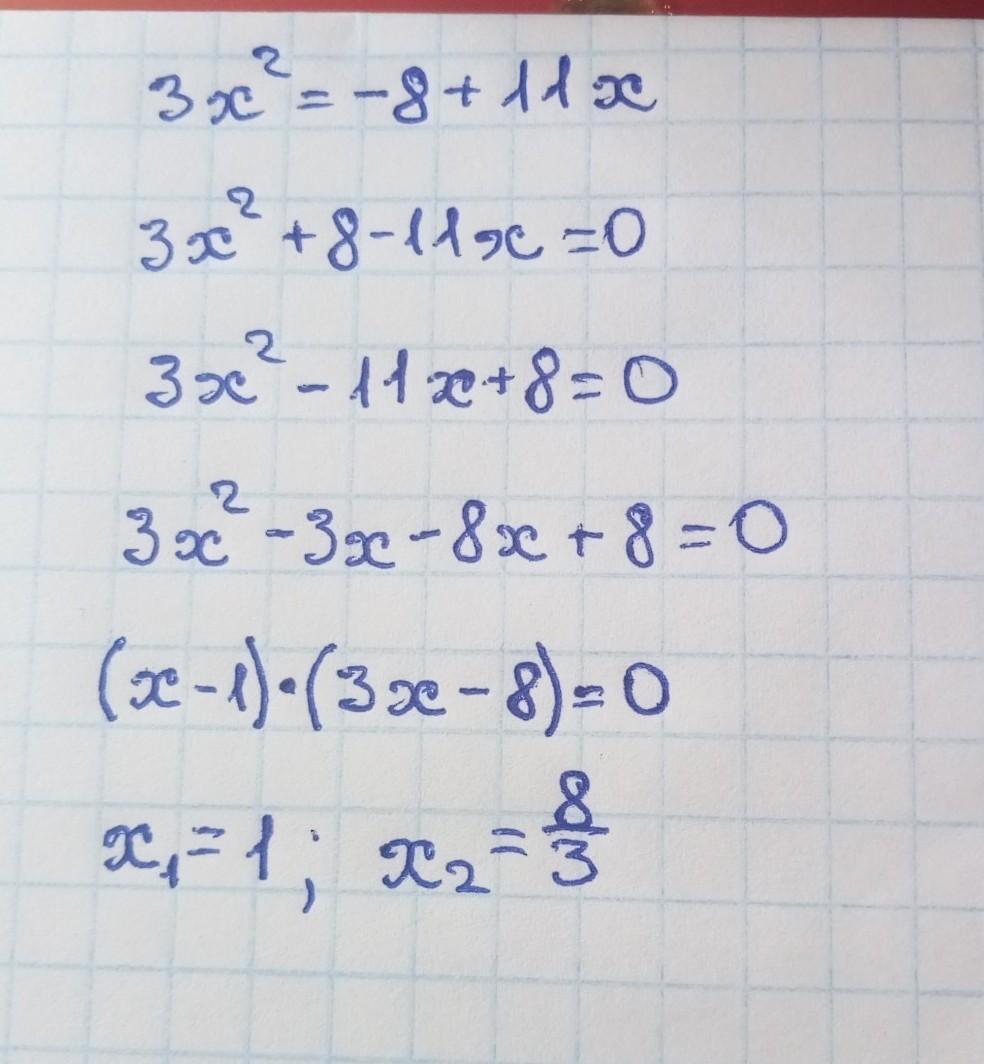 3x² = -8 + 11x
3x² + 8 - 11x = 0
3x² - 11x + 8 = 0
3x² - 3x - 8x + 8 = 0
(x - 1) · (3x - 8) = 0
x₁ = 1; x₂ = 8/3